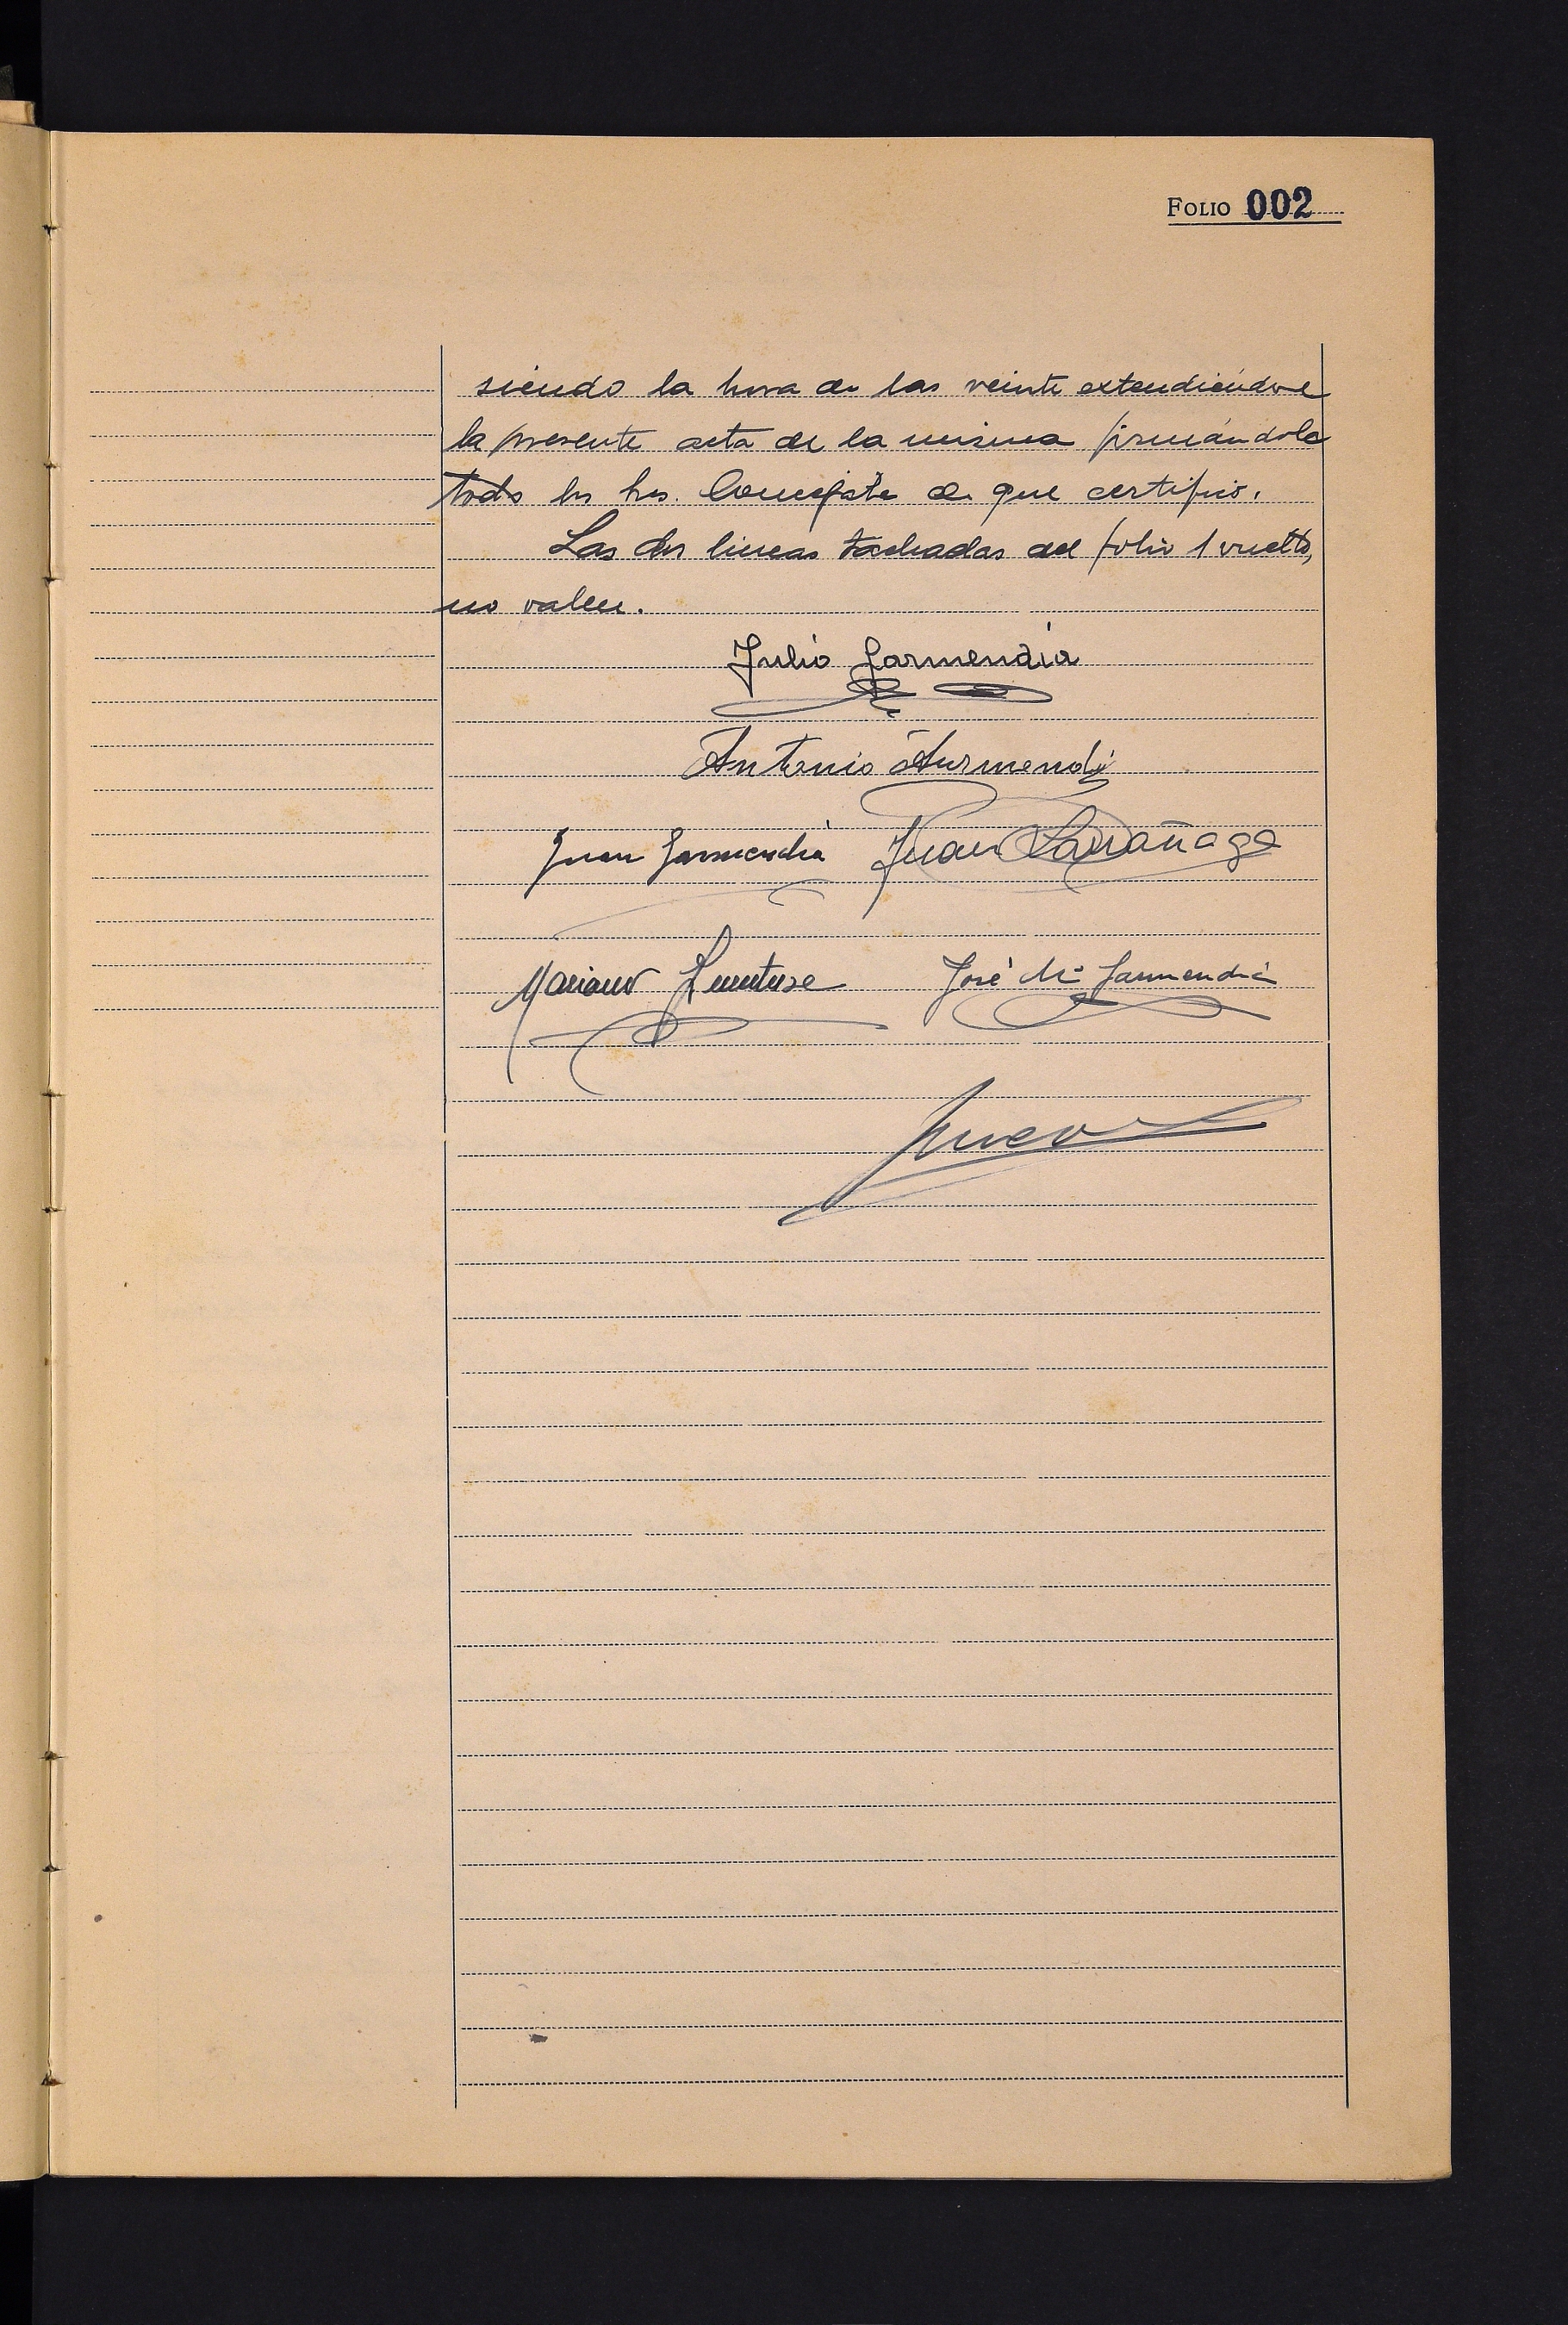 FOLIO 002
siendo la hora de las veinte extendiéndose
la presente acta de la misma firmándola
todos los Sres. Concejales de que certifico.
Las dos lineas tachadas del folio 1 vuelto,
no valen.
Julio Garmendia
Antonio Aurmendi
Juan Garmendia Juan Larrañaga
Mariano José Mª Garmendia